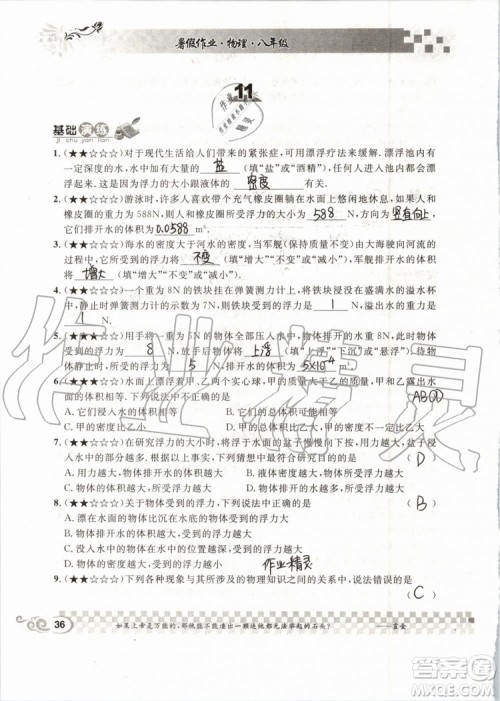 暑假作业·物理·八年级
11
基础演练
ji chu yan lian
1.(★★☆☆☆)对于现代生活给人们带来的紧张症,可用漂浮疗法来缓解。漂浮池是一个较大的
水池,水中有大量的 盐 (填“盐”或“酒精”),任何人进入池内都会漂浮在水面
上,这是因为浮力的大小跟液体的 密度 有关。
2.(★★☆☆☆)游泳时,我们常能看见有人抱着带个充气橡皮圈躺在水面上悠闲地休息,如果人和
橡皮圈的重力为588N,则人和橡皮圈受到的浮力大小为 588 N,方向为 竖直向上,
它们排开水的体积为 0.0588 m³。
3.(★★☆☆☆)海水的密度大于河水的密度,当军舰(保持质量不变)由大海驶向河流的
过程中,它受到的浮力将 不变 (填“增大”“不变”或“减小”),军舰排开水的体积
将 增大 (填“增大”“不变”或“减小”)。
4.(★★☆☆☆)将一个重为8N的铁块挂在弹簧测力计下,浸没在装满水的溢水杯中
静止时弹簧测力计的示数为7N,则铁块受到的浮力为 1 N,铁块排开水的重力
为 1 N。
5.(★★☆☆☆)用手将一重为5N的物体全部压入水中,物体排开的水重为8N,此时物体受到的
浮力为 8 N,放手后物体将 上浮 (填“上浮”“下沉”或“悬浮”),待物
体静止时,此时物体所受浮力为 5 N,物体排开水的体积为 5×10⁻⁴ m³。
6.(★★☆☆☆)水面上漂浮着甲、乙两个实心球,甲的体积大于乙的体积,甲和乙露出水
面的体积相等。下列说法正确的是 ABD
A.它们浸入水中的体积,甲大乙小 B.它们受到的浮力,甲大乙小
C.它们的密度,甲小乙大 D.它们的密度,甲大乙小
7.(★★☆☆☆)在研究浮力的大小时,将手浮于水面的盆子按入水中,会感觉越用力,盆子浸
入水中越多。据此,以下猜想最符合探究目的的是 ( D )
A.用力越大,物体所受的浮力越大 B.物体的质量越大,所受的浮力越大
C.物体的体积越大,所受的浮力越大 D.物体排开水的体积越大,所受的浮力越大
8.(★★☆☆☆)关于物体受到的浮力,下列说法正确的是 ( B )
A.漂在水面的物体比沉在水底的物体受到的浮力大
B.物体排开水的体积越大,受到的浮力越大
C.浸没在水中的物体在水中的位置越深,受到的浮力越大
D.物体的密度越大,受到的浮力越小
作业精灵
9.(★★☆☆☆)下列各种现象与其所涉及的物理知识之间的关系中,说法错误的是
( C )
36
如果上帝是万能的,那他能不能造出一颗连他都无法举起的石头? ——霍金